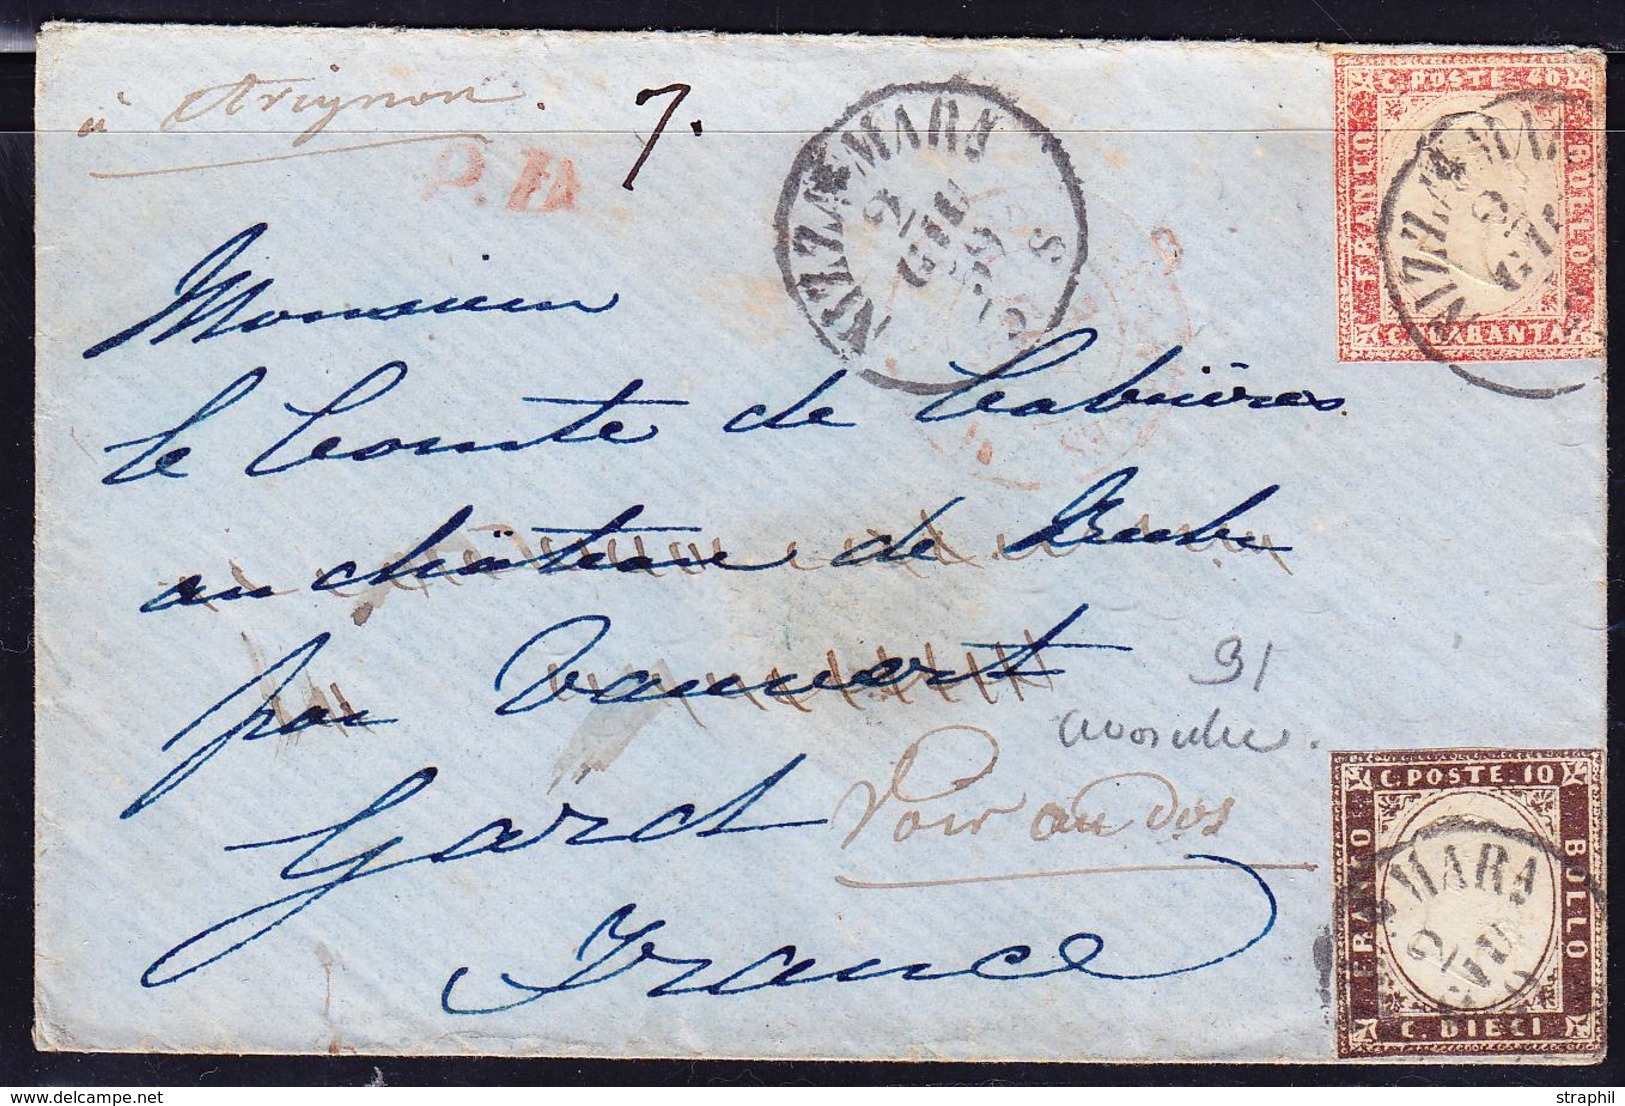 à Avignon.
7.
P.D.
NIZZA MARA
2
GIU
59
S
C. POSTE 40
FRANCO
BOLLO
C. QUARANTA
NIZZA MAR
2
GIU
Monsieur
le Comte de Cabrières
au château de
par Vauvert
91
Gard
Voir au dos
France
C. POSTE 10
FRANCO
BOLLO
C. DIECI
MARA
2
GIU
© straphil - www.delcampe.net